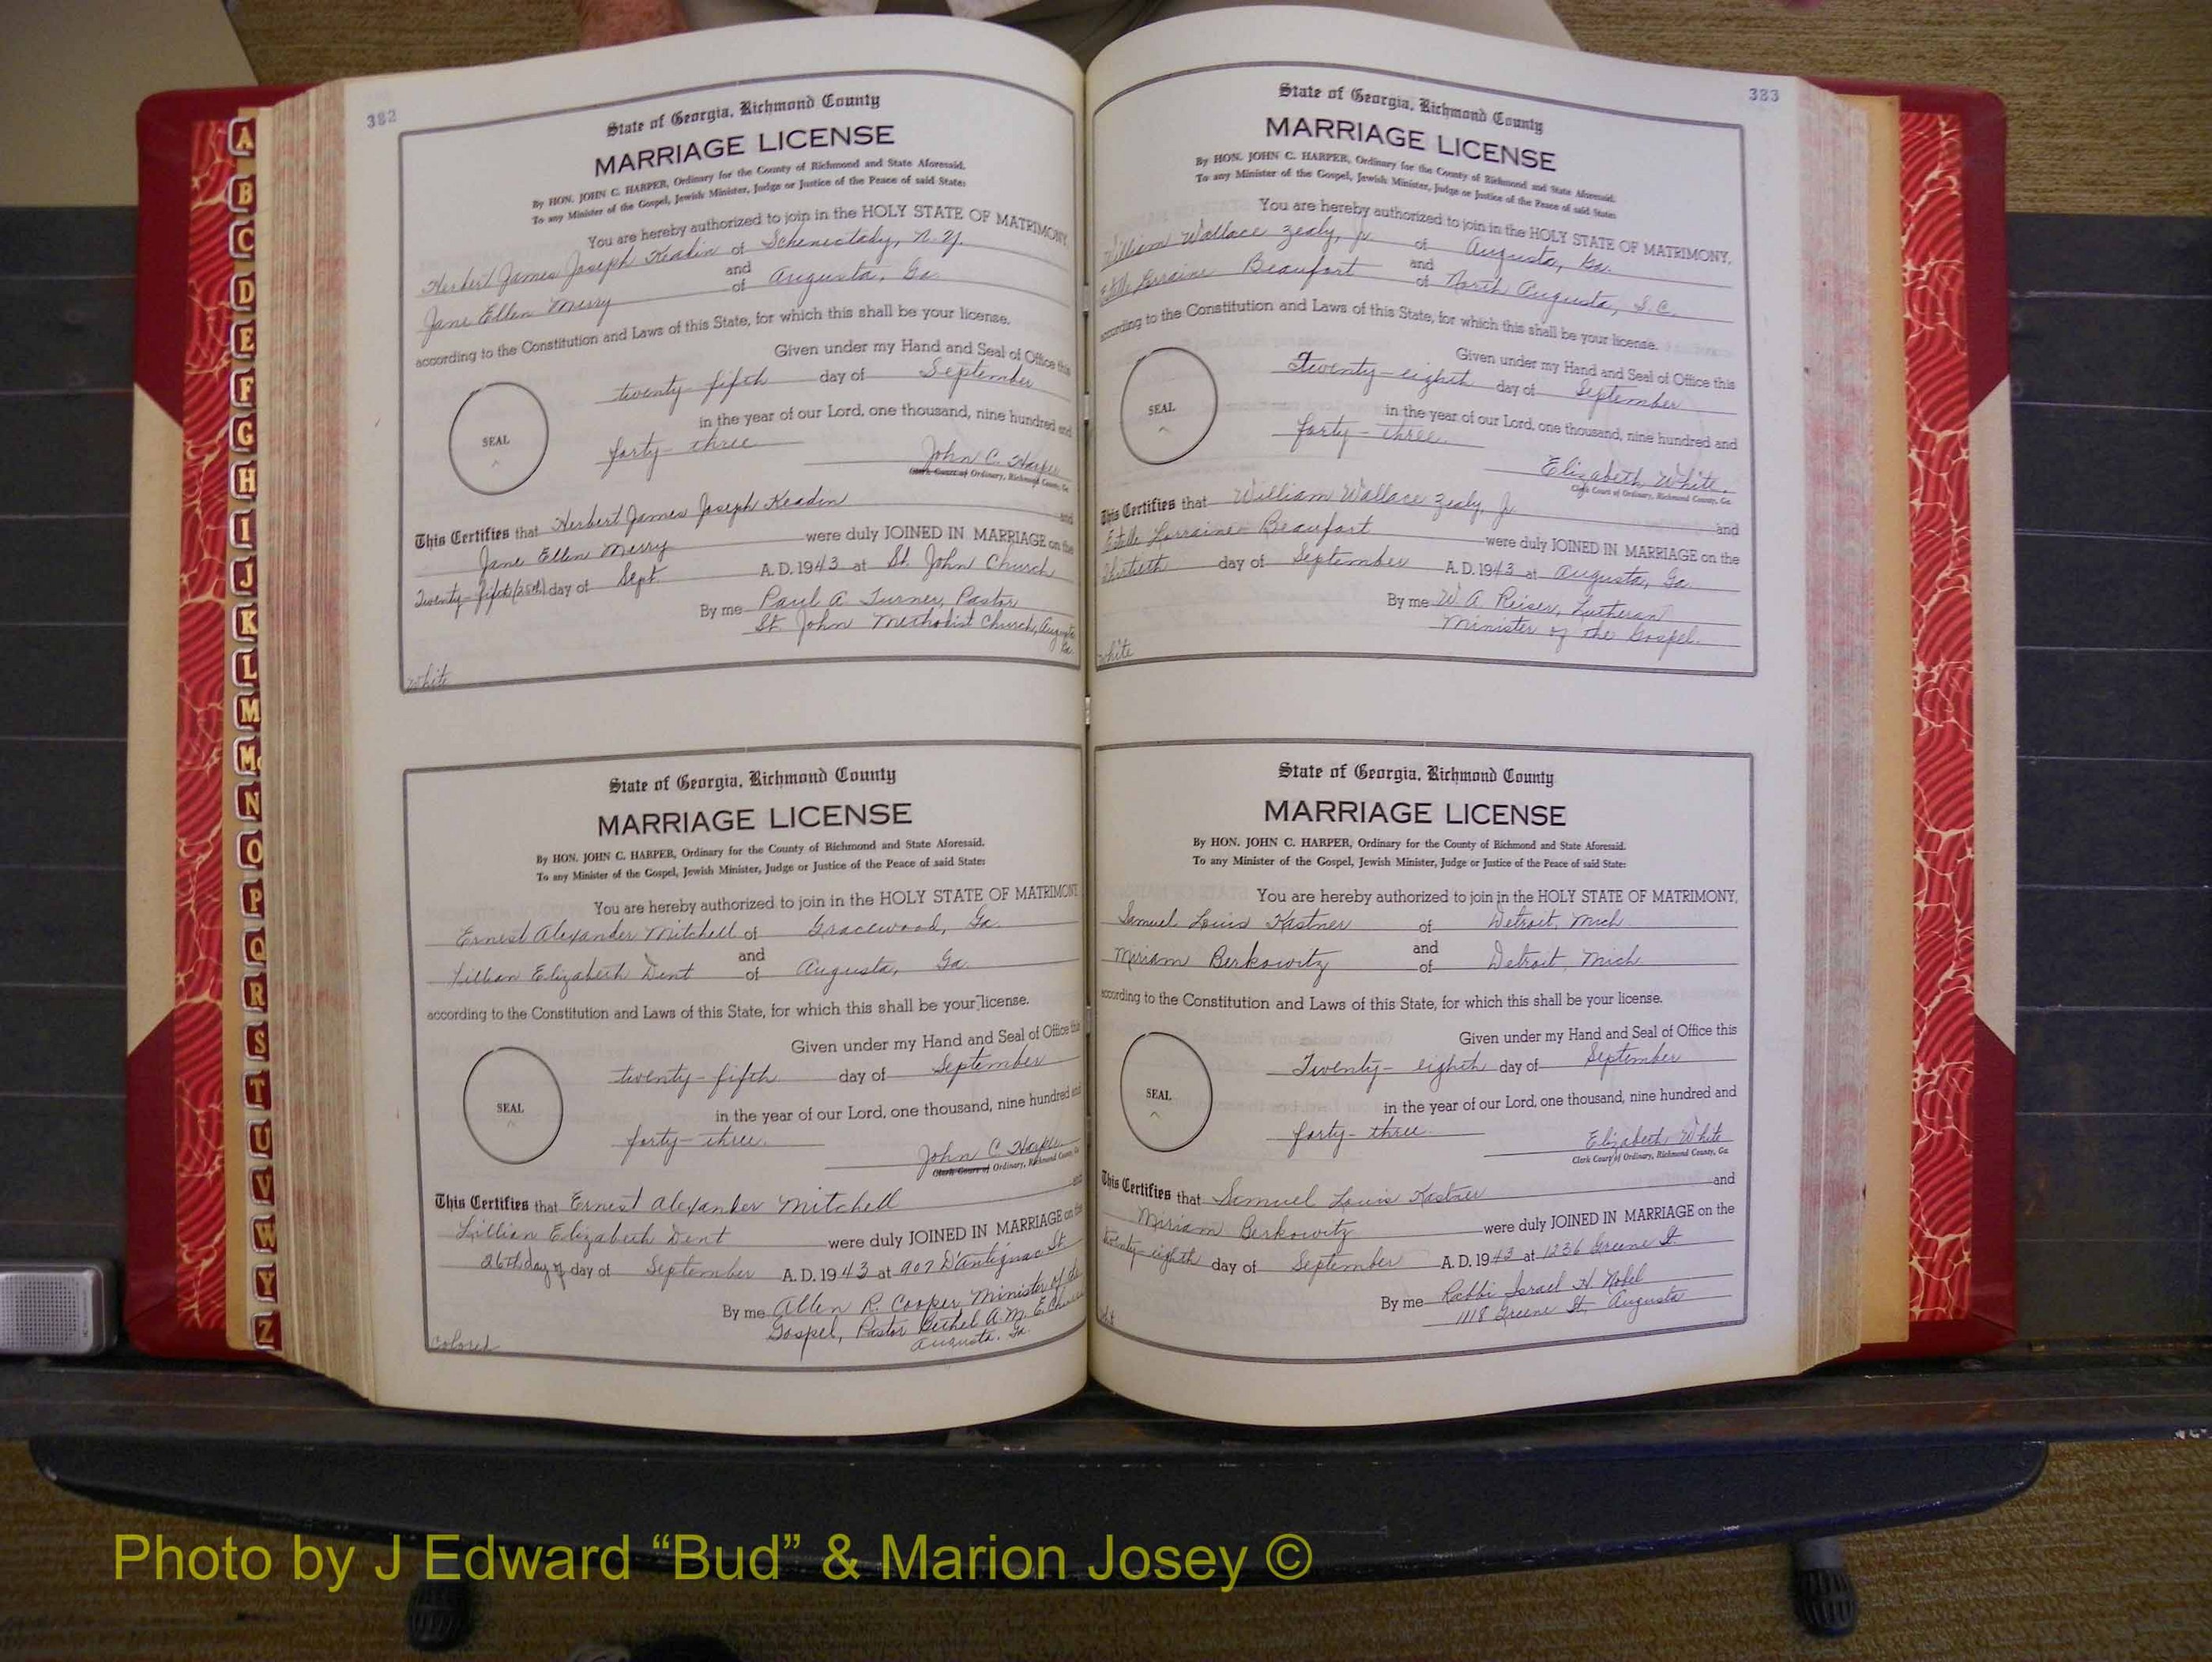 382
State of Georgia, Richmond County
MARRIAGE LICENSE
By HON. JOHN C. HARPER, Ordinary for the County of Richmond and State Aforesaid.
To any Minister of the Gospel, Jewish Minister, Judge or Justice of the Peace of said State:
You are hereby authorized to join in the HOLY STATE OF MATRIMONY,
Herbert James Joseph Keadin of Schenectady, N.Y.
and
Jane Ellen Merry of Augusta, Ga.
according to the Constitution and Laws of this State, for which this shall be your license.
Given under my Hand and Seal of Office this
twenty-fifth day of September
in the year of our Lord, one thousand, nine hundred and
SEAL
forty-three
John C. Harper
Clerk Court of Ordinary, Richmond County, Ga.
This Certifies that Herbert James Joseph Keadin and
Jane Ellen Merry were duly JOINED IN MARRIAGE on the
Twenty-fifth (25th) day of Sept. A. D. 1943 at St. John Church
By me Paul A. Turner, Pastor
St. John Methodist Church, Augusta
Ga.
White
State of Georgia, Richmond County
MARRIAGE LICENSE
By HON. JOHN C. HARPER, Ordinary for the County of Richmond and State Aforesaid.
To any Minister of the Gospel, Jewish Minister, Judge or Justice of the Peace of said State:
You are hereby authorized to join in the HOLY STATE OF MATRIMONY
Ernest Alexander Mitchell of Gracewood, Ga.
and
Lillian Elizabeth Dent of Augusta, Ga.
according to the Constitution and Laws of this State, for which this shall be your license.
Given under my Hand and Seal of Office this
twenty-fifth day of September
in the year of our Lord, one thousand, nine hundred and
SEAL
forty-three.
John C. Harper
Clerk Court of Ordinary, Richmond County, Ga
This Certifies that Ernest Alexander Mitchell and
Lillian Elizabeth Dent were duly JOINED IN MARRIAGE on the
26th day of day of September A. D. 1943 at 907 D'Antignac St.
By me Allen R. Cooper, Minister of the
Gospel, Pastor Bethel A.M.E. Church
Augusta, Ga.
Colored
383
State of Georgia, Richmond County
MARRIAGE LICENSE
By HON. JOHN C. HARPER, Ordinary for the County of Richmond and State Aforesaid.
To any Minister of the Gospel, Jewish Minister, Judge or Justice of the Peace of said State:
You are hereby authorized to join in the HOLY STATE OF MATRIMONY,
William Wallace Zealy, Jr. of Augusta, Ga.
and
Lorraine Beaufort of North Augusta, S.C.
according to the Constitution and Laws of this State, for which this shall be your license.
Given under my Hand and Seal of Office this
Twenty-eighth day of September
in the year of our Lord, one thousand, nine hundred and
SEAL
forty-three.
Elizabeth White.
Clerk Court of Ordinary, Richmond County, Ga.
This Certifies that William Wallace Zealy, Jr. and
Estelle Lorraine Beaufort were duly JOINED IN MARRIAGE on the
thirtieth day of September A. D. 1943 at Augusta, Ga.
By me W. A. Reiser, Lutheran
Minister of the Gospel.
White
State of Georgia, Richmond County
MARRIAGE LICENSE
By HON. JOHN C. HARPER, Ordinary for the County of Richmond and State Aforesaid.
To any Minister of the Gospel, Jewish Minister, Judge or Justice of the Peace of said State:
You are hereby authorized to join in the HOLY STATE OF MATRIMONY,
Samuel Louis Kastner of Detroit, Mich.
and
Miriam Berkowitz of Detroit, Mich.
according to the Constitution and Laws of this State, for which this shall be your license.
Given under my Hand and Seal of Office this
Twenty-eighth day of September
in the year of our Lord, one thousand, nine hundred and
SEAL
forty-three.
Elizabeth White
Clerk Court of Ordinary, Richmond County, Ga.
This Certifies that Samuel Louis Kastner and
Miriam Berkowitz were duly JOINED IN MARRIAGE on the
twenty-eighth day of September A. D. 1943 at 1236 Greene St.
By me Rabbi Israel H. Nobel
1118 Greene St., Augusta
A
B
C
D
E
F
G
H
I
J
K
L
M
Mc
N
O
P
Q
R
S
T
U
V
W
Y
Z
Photo by J Edward “Bud” & Marion Josey ©